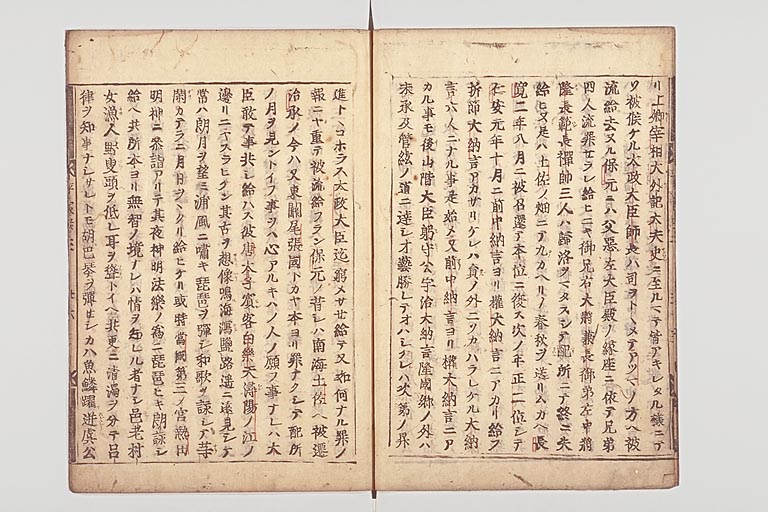 リ上卿宰相大外記大夫史ニ至ルマテ皆アキレタル様ニテ
ソ被候ケル太政大臣師長ハ司ヲトヽメテアツマノ方ヘ被
流給去又ル保元ニハ父悪左大臣殿ノ縁座ニ依テ兄弟
四人流罪セラレ給ヒニキ御兄右大将兼長御弟左中将
隆長範長禅師三人ハ帰洛ヲマタスシテ配所ニテ終ニ失
給ヒ又是ハ土佐ノ畑ニテ九カヘリノ春秋ヲ送リムカヘ長
寛二年八月ニ被召還テ本位ニ復ス次ノ年正二位シテ
仁安元年十月ニ前中納言ヨリ權大納言ニアカリ給フ
折節大納言アカサリケレハ員ノ外ニソカハラレケル大納
言六人ニナル事是始メ又前中納言ヨリ權大納言ニア
カル事モ後山階大臣躬守公宇治大納言隆國卿ノ外ハ
未承及管絃ノ道ニ達シオ藝勝レテオハシケレハ次第ノ昇
進トヽコホラス太政大臣迄窮メサセ給テ又如何ナル罪ノ
報ニヤ重テ被流給フラン保元ノ昔シハ南海土佐ヘ被遷
治承ノ今ハ又東關尾張國トカヤ本ヨリ罪ナクシテ配所
ノ月ヲ見ントイフ事ヲハ心アルキハノ人ノ願フ事ナレハ大
臣敢テ事共シ給ハス彼唐太子賓客白樂天潯陽ノ江ノ
邊リニヤスラヒケン其古ヲ想像鳴海瀉鹽路遥ニ遠見シテ
常ハ朗月ヲ望ミ浦風ニ嘯キ琵琶ヲ弾シ和歌ヲ詠シテ等
閑カテラニ月日ヲヘクリ給ヒケリ或時當國第三ノ宮熱田
明神ニ参詣アリテ其夜神明法樂ノ為ニ琵琶ヒキ朗詠シ
給ヘ共所本ヨリ無智ノ境ナレハ情ヲ知レル者ナシ邑老村
女漁人野叟頭ヲ低レ耳ヲ聳トイヘ共更ニ清濁ヲ分テ呂
律ヲ知事ナシサレトモ胡巴琴ヲ弾セシカハ魚鱗躍迸虞公